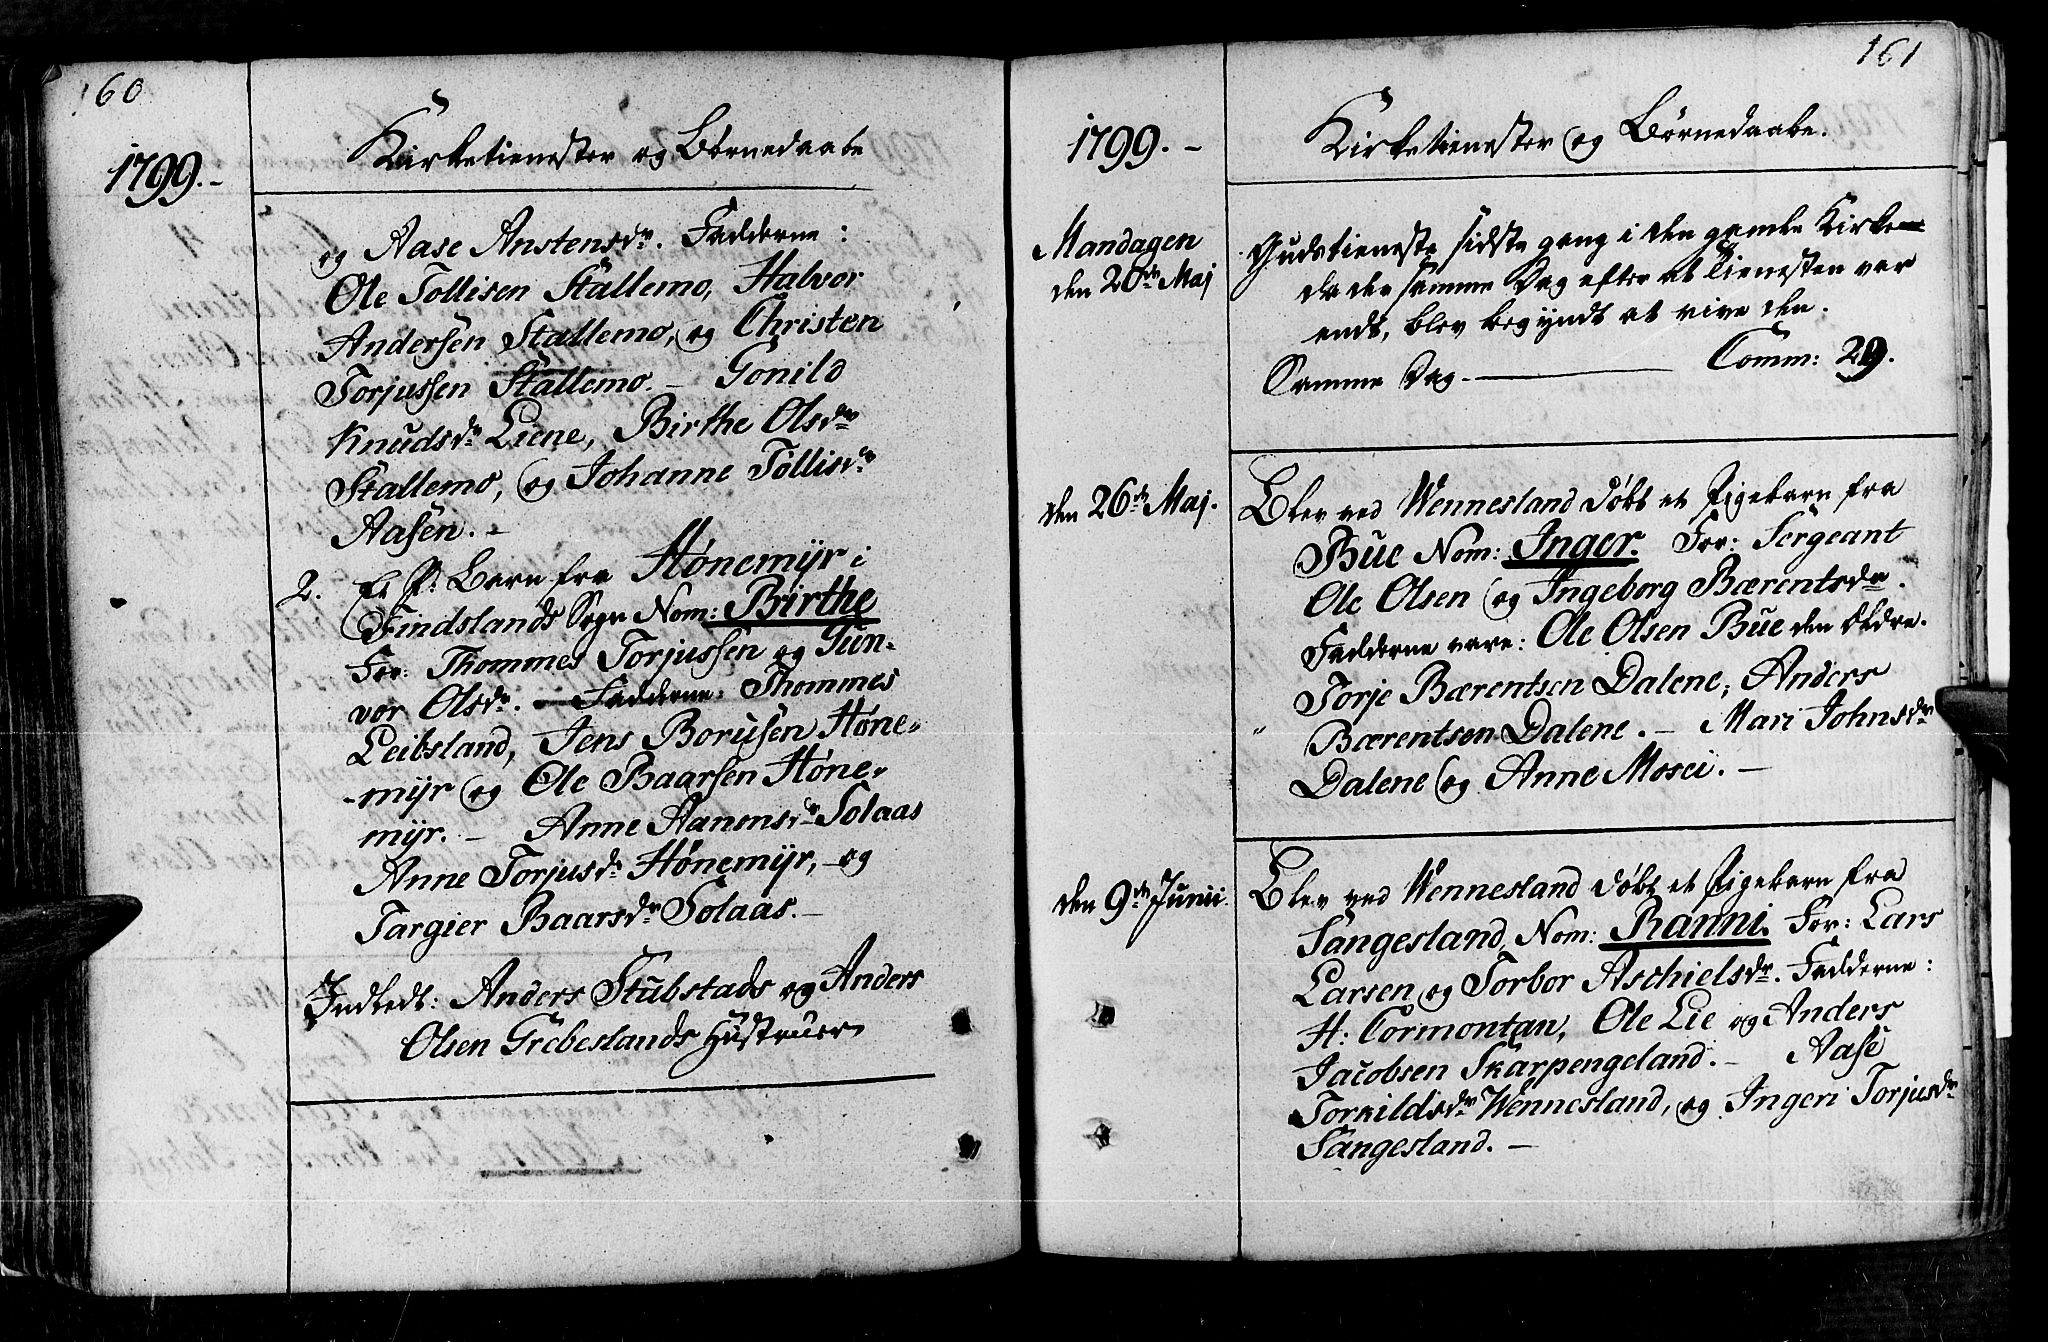 160
1799.-
Kirketienester og Børnedaabe
og Aase Anstensdr. Fadderne:
Ole Tollisen Stallemo, Halvor
Andersen Stallemo, og Christen
Torjussen Stallemo. - Gonild
Knudsdr Liene, Birthe Olsdr
Stallemo, og Johanne Tollisdr
Aasen. -
2. Et P: Barn fra Hønemyr i
Findslands Sogn Nom: Birthe
For: Thommes Torjussen og Gun-
vor Olsdr. - Fadderne: Thommes
Leibsland, Jens Borusen Høne-
-myr og Ole Baarsen Høne-
myr. - Anne Aanensdr Solaas
Anne Torjusdr Hønemyr, og
Targier Baarsdr Solaas. -
Indledt: Anders Stubstads og Anders
Olsen Grebeslands Hustruer
161
1799. -
Kirketienester og Børnedaabe.
Mandagen
den 20de Maj
Gudstieneste sidste gang i den gamle Kirke
da der samme Dag efter at Tienesten var
endt, blev begyndt at rive den.
Samme Dag. - Comm: 29.
den 26de Maj.
Blev ved Wennesland døbt et Pigebarn fra
Bue Nom: Inger. For: Sergeant
Ole Olsen og Ingeborg Bærentsdr.
Fadderne vare: Ole Olsen Bue den Ældre.
Torje Bærentsen Dalene, Anders
Bærentsen Dalene. - Mari Johnsdr
Dalene og Anne Mosei. -
den 9de Junii.
Blev ved Wennesland døbt et Pigebarn fra
Sangesland, Nom: Ranni. For: Lars
Larsen og Torbor Aschielsdr. Fadderne:
H: Cormontan, Ole Lie og Anders
Jacobsen Skarpengeland. - Aase
Torkildsdr Wennesland, og Ingeri Torjusdr
Sangesland. -